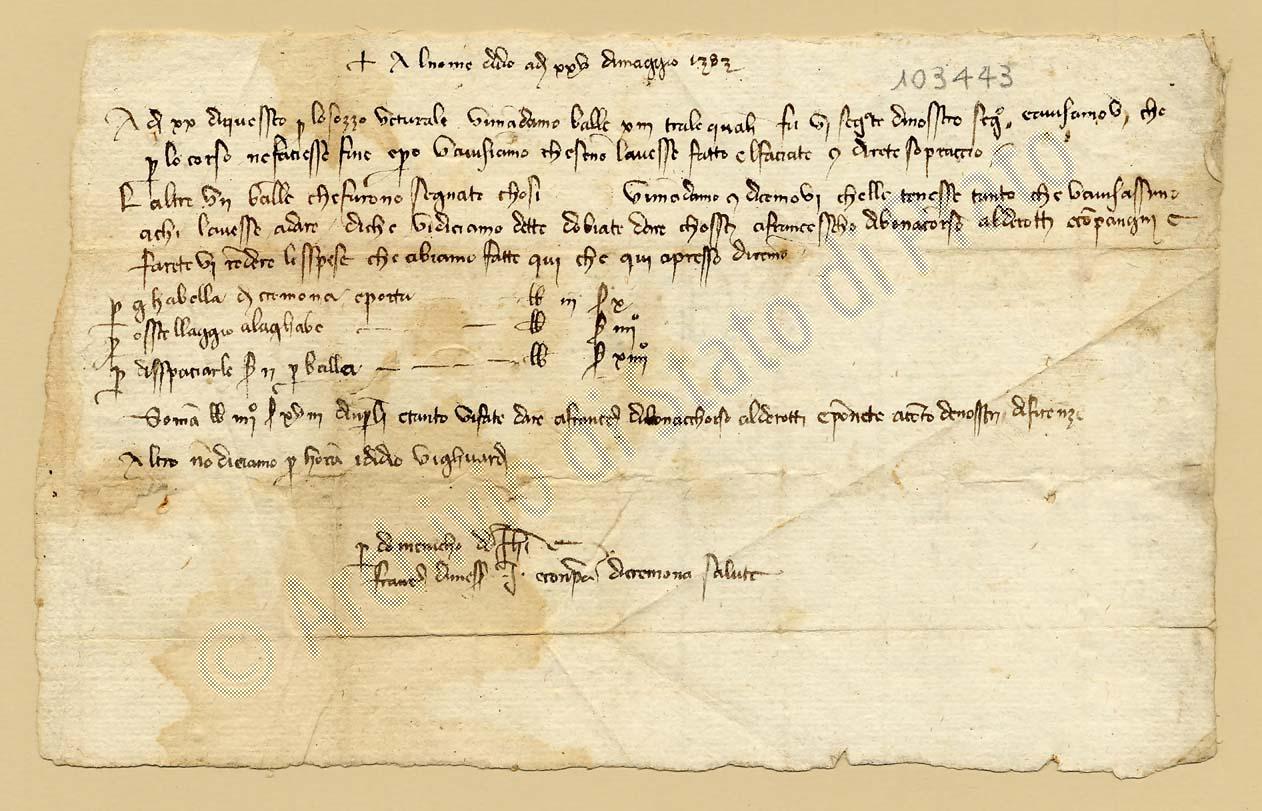 + Al nome di dio adj xxv di maggio 1383
103443
Adj xx di questo p lo sozzo vetturale vi mandamo balle xiii tra le quali fu vj segnate di nostro segno e avisamovi che
p lo corso ne faciesse fine e però v avisiamo che se no l avesse fatto el faciate e direte sopraccio
L altre vii balle che furono segnate chosi vi mandamo e dicemovi che lle tenesse tanto che v avisassimo
a chi l avesse a dare di che vi diciamo dette dobiate dare chosti a franciescho di bonacorso alderotti e conpangni e
faretevi rendere le sspese che abiamo fatte qui che qui apresso diremo
p ghabella di cremona e porta — lb iii s x
p osstellaggio a laghabe — lb s iiij
p disspaciarle s ii p balla — lb s xiiij
Soma lb iiij s xviii d'inpli e tanto vi fate dare a franco di bonacchorso alderotti e ponete a conto de nostri di firenze
Altro no diciamo p hora idio vi ghuardi
p domenicho
franco e conpa di cremona salute
© Archivio di Stato di Prato